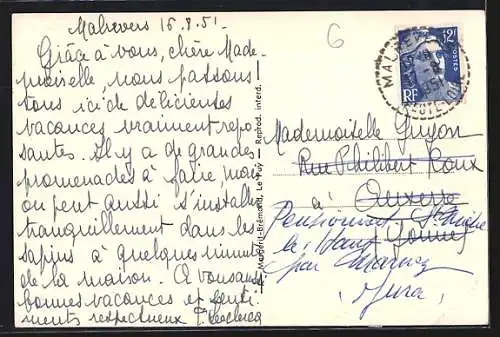 Malrevers 16.8.51.
6
Grâce à vous, chère Made-
moiselle, nous passons
tous ici de délicieuses
vacances, vraiment repo-
santes. Il y a de grandes
promenades à faire, mais
on peut aussi s'installer
tranquillement dans les
sapins à quelques minutes
de la maison. A vous aussi
bonnes vacances et senti-
ments respectueux F. Leclercq
Margerit-Brémond, Le Puy — Reprod. interd.
12F
POSTES
RF
MALREVERS
HAUTE-LOIRE
Mademoiselle Guyon
Rue Philibert Roux
à Auxerre
Yonne
Pensionnat
le Haut
par
Jura